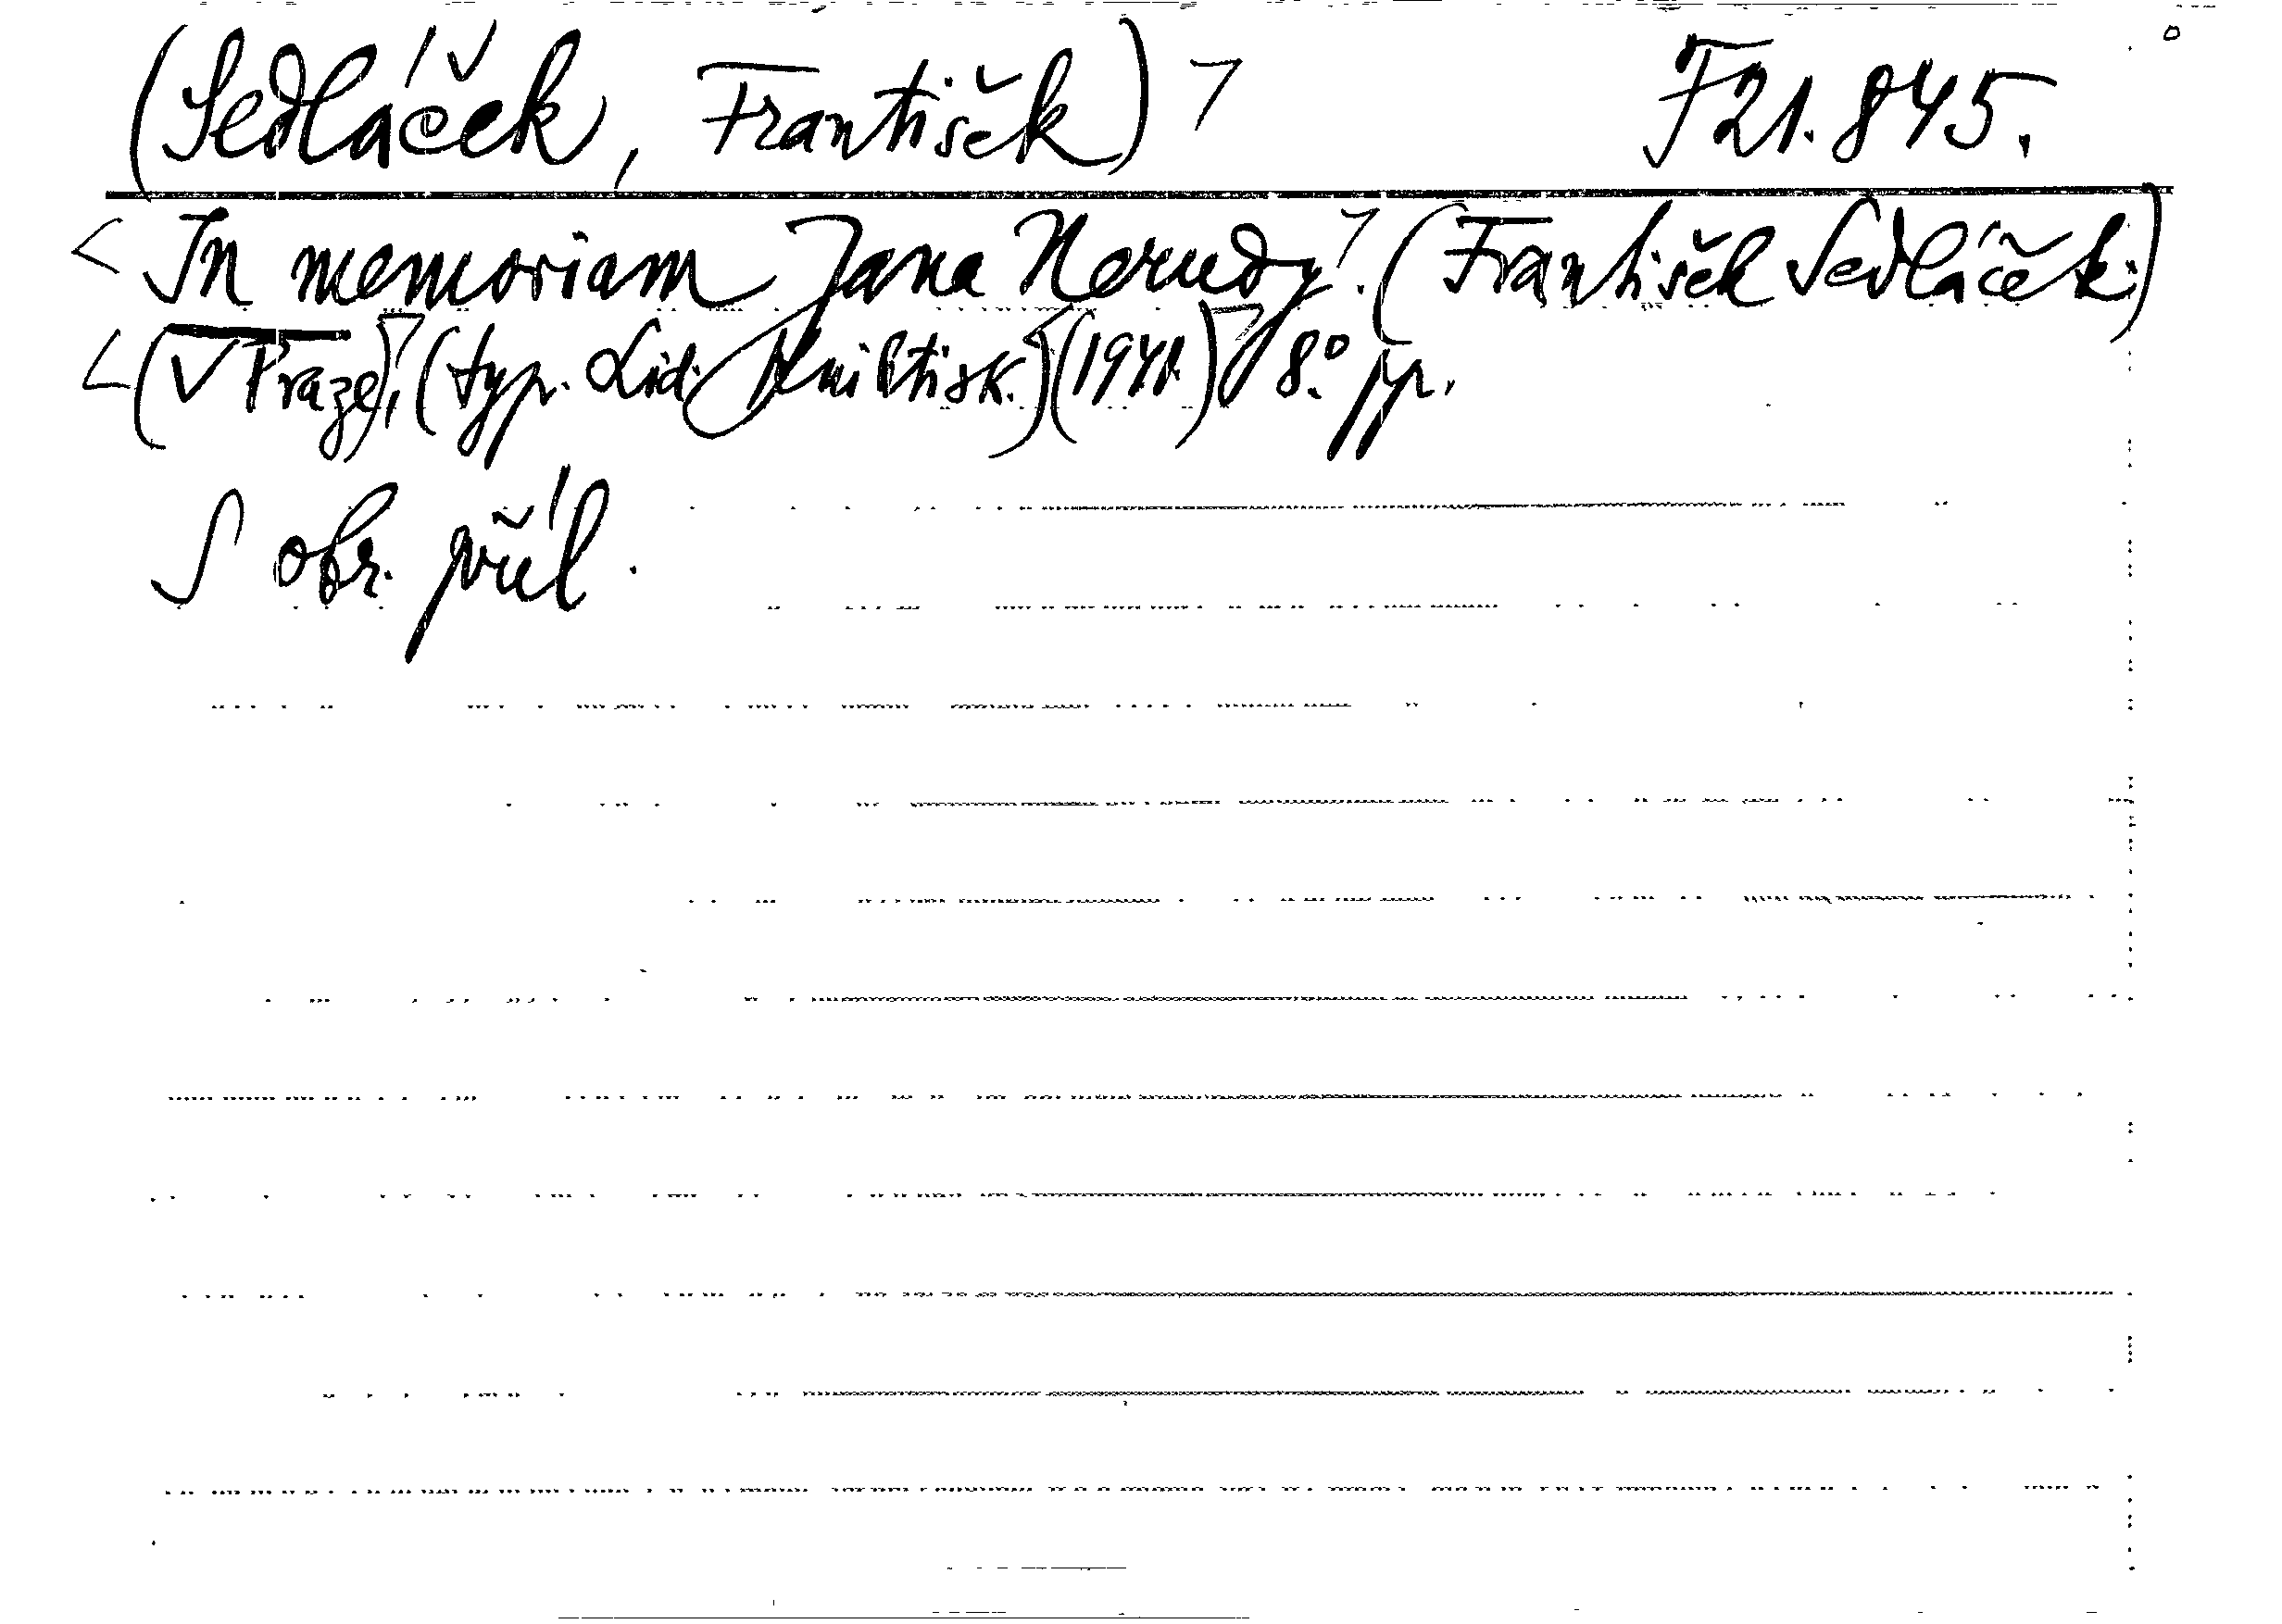 (Sedláček, František) F 21.845.
In memoriam Jana Nerudy. (František Sedláček.)
(V Praze), (typ. Lid. Knihtisk.) (1941.) 8.° pp.
S obr. příl.